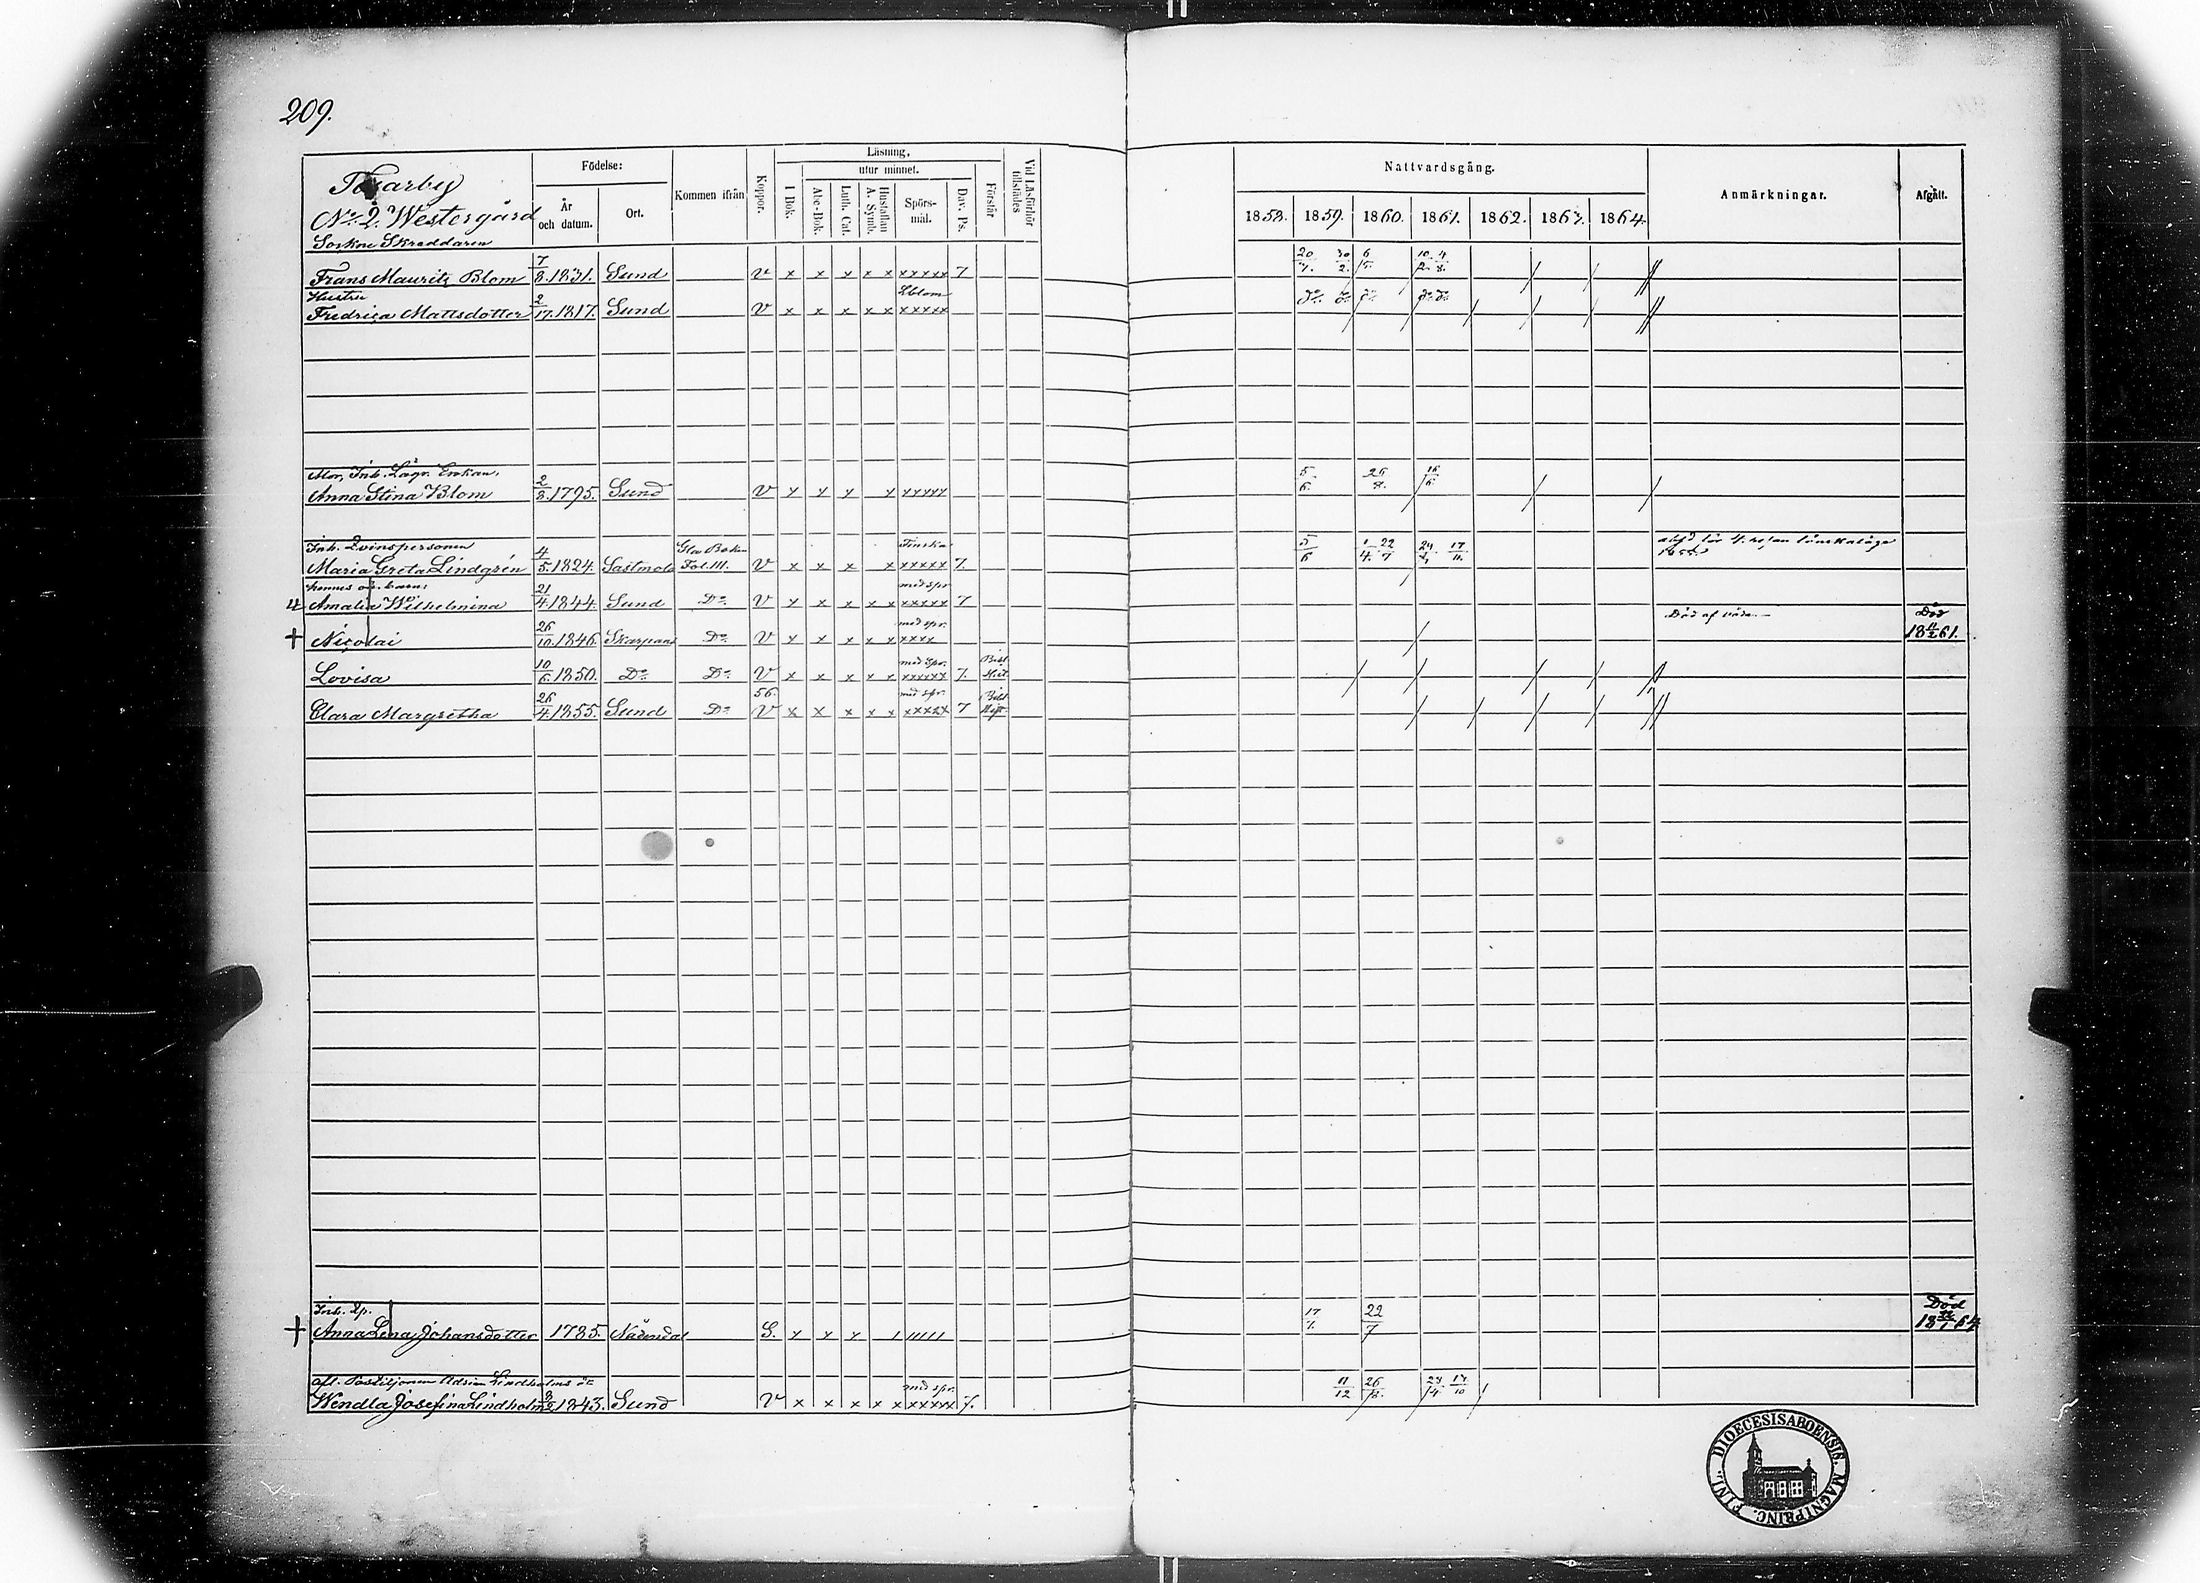 209.
Födelse: Läsning, utur minnet. Nattvardsgång.
År och datum. Ort. Kommen ifrån Koppor. I Bok. Abc-Bok. Luth. Cat. Hustaflan A. Symb. Spörsmål. Dav. Ps. Förstår Vid Läsförhör tillstädes 1858. 1859. 1860. 1861. 1862. 1863. 1864. Anmärkningar. Afgått.
No. 2. Westergård
Sockne Skreddaren
Frans Mauritz Blom 7/8. 1831. Sund v x x x x x xxxxx 7 20/4. 30/2. 6/5.
Hustru
Fredrica Mattsdotter 2/17. 1817. Sund V x x x x x xxxxx
Mor, Inh. Enkan,
Anna Stina Blom 2/8. 1795. Sund V x x x x xxxxx 5/6. 26/8. 16/6.
Inh. Qvinspersonen Finska
Maria Greta Lindgrén 4/5. 1824. Sastmola Fol. 111. V x x x x xxxxx 7. 5/6 1/4. 22/7 17/11.
hennes oä. barn: med spr
Amalia Wilhelmina 21/4. 1844. Sund Do V x x x x x xxxxx 7
med spr. Död
+ Nicolai 26/10. 1846. Skarpans Do V x x x x x xxxx Död af 18 11/2 61.
med Spr.
Lovisa 10/6 1850. Do Do V x x x x x xxxxxx 7.
56. med spr.
Clara Margretha 26/4. 1855. Sund Do V x x x x x xxxxx 7
Inh. Qp. Död
+ Anna Lena Johansdotter 1785. Nådendal S. x x x 17/7. 22/7
Afl. Postiljonen Adrian Lindholms med spr.
Wendla Josefina Lindholm 1843. Sund V x x x x x xxxxx 7. 11/12 26/8. 23/4 17/10
FINL. DIOECESIS ABOENSIS. MAGNI PRINC.